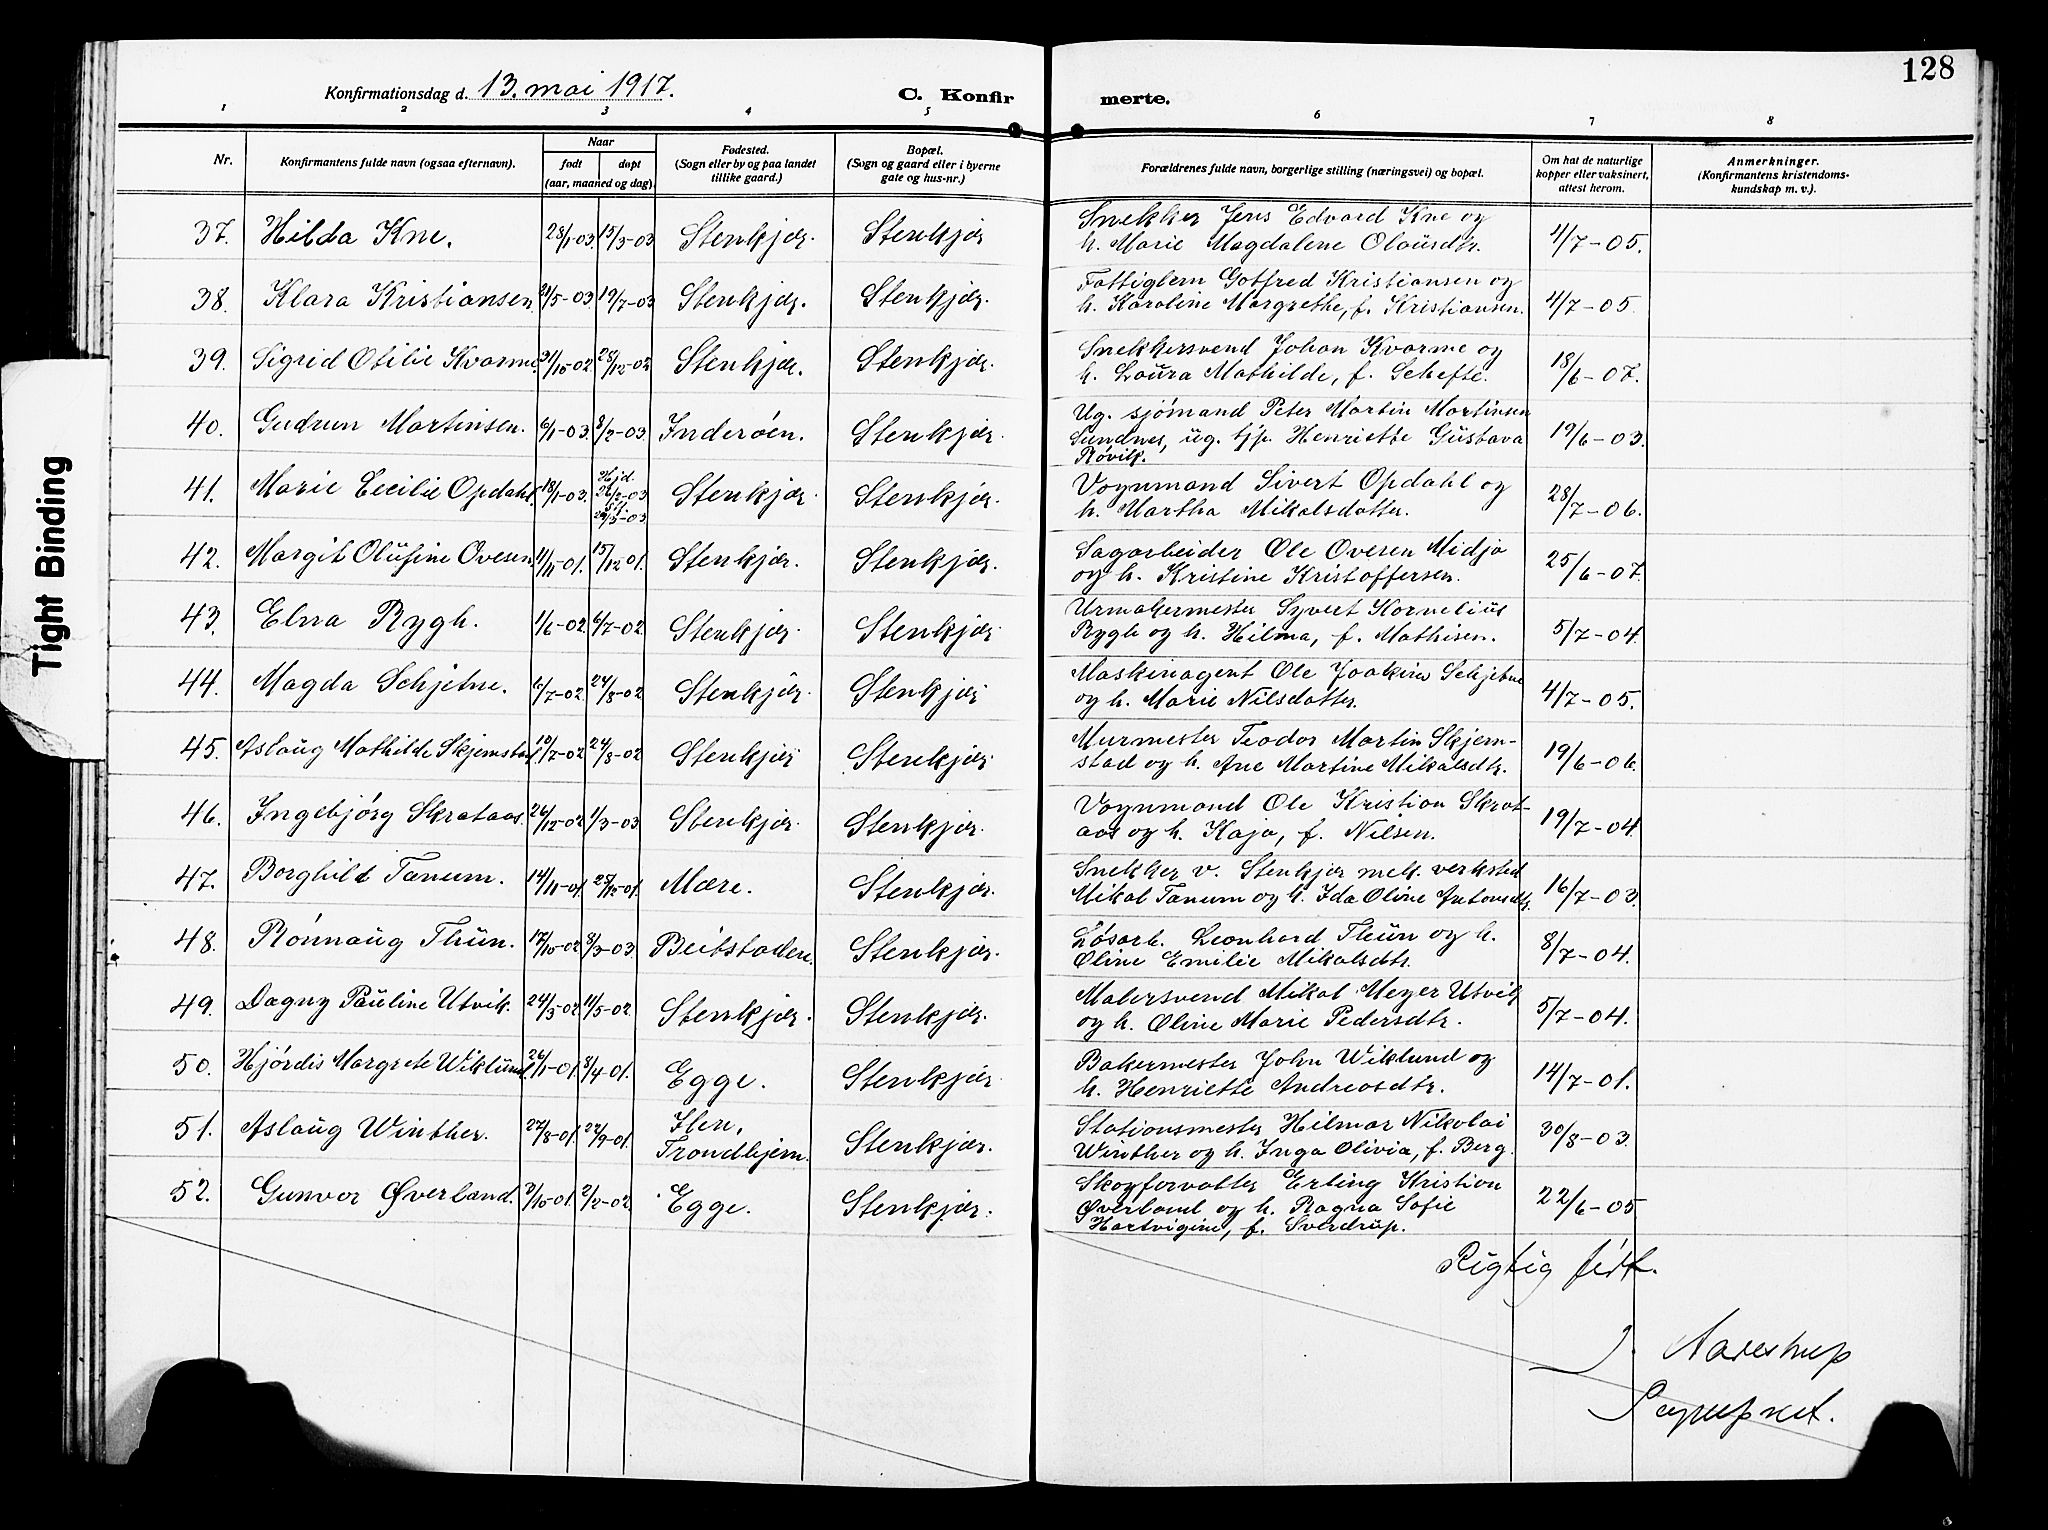 128
Konfirmationsdag d. 13. mai 1917.
C. Konfirmerte.
1 2 3 4 5 6 7 8
Nr. Konfirmantens fulde navn (ogsaa efternavn). Naar født døpt (aar, maaned og dag). Fødested. (Sogn eller by og paa landet tillike gaard.) Bopæl. (Sogn og gaard eller i byerne gate og hus-nr.) Forældrenes fulde navn, borgerlige stilling (næringsvei) og bopæl. Om hat de naturlige kopper eller vaksinert, attest herom. Anmerkninger. (Konfirmantens kristendomskundskap m. v.).
37. Hilda Kne. 28/1-03. 15/3-03 Stenkjær. Stenkjær Snekker Jens Edvard Kne og
h. Marie Magdalene Olaüsdtr. 4/7-05.
38. Klara Kristiansen 21/5-03. 19/7-03 Stenkjær. Stenkjær. Fattiglem Gotfred Kristiansen og
h. Karoline Margrethe, f. Kristiansen. 4/7-05.
39. Sigrid Otilie Kvarme. 31/10-02. 28/12-02 Stenkjær. Stenkjær. Snekkersvend Johan Kvarme og
h. Laüra Mathilde, f. Schefte. 18/6-07.
40. Gudrun Martinsen. 6/1-03. 8/2-03 Inderøen. Stenkjær. Ug. sjømand Peter Martin Martinsen
Sundnes, üg. tjp. Henriette Güstava
Røvik. 19/6-03.
41. Marie Cecilie Opdahl. 18/1-03. Hjd. 26/2-03 Stenkjær. Stenkjær. Vognmand Sivert Opdahl og
h. Martha Mikalsdatter. 28/7-06.
42. Margit Olüfine Ovesen 4/11-01. 15/12 01. Stenkjær. Stenkjær. Sagarbeider Ole Ovesen Midjo
og h. Kristine Kristoffersen. 25/6-07.
43. Elna Rygh. 1/6-02. 6/7-02. Stenkjær. Stenkjær. Urmakermester Syvert Kornelius
Rygh og h. Hilma, f. Mathisen. 5/7-04.
44. Magda Schjetne. /7-02. 24/8-02 Stenkjær. Stenkjær Maskinagent Ole Joakim Schjetne
og h. Marie Nilsdatter. 4/7-05.
45. Aslaüg Mathilde Skjemstad 10/7-02. 24/8-02 Stenkjær Stenkjær Murmester Teodor Martin Skjem-
stad og h. Ane Martine Mikalsdtr. 19/6-06.
46. Ingebjørg Skrataas. 26/12-02 1/3-03 Stenkjær. Stenkjær. Vognmand Ole Kristian Skrat-
aas og h. Kaja, f. Nilsen. 19/7-04.
47. Borghild Tanum. 14/11-01. 25/12-01. Mære. Stenkjær. Snekker v. Stenkjær mek. verksted
Mikal Tanum og h. Ida Oline Antonsdtr. 16/7-03.
48. Rønnaüg Thün. 17/10-02 8/3-03 Beitstaden. Stenkjær. Løsarb. Leonhard Thün og h.
Oline Emilie Mikalsdtr. 8/7-04.
49. Dagny Paüline Utvik. 24/3-02 11/5-02. Stenkjær. Stenkjær. Malersvend Mikal Meyer Utvik
og h. Oline Marie Pedersdtr. 5/7-04.
50. Hjørdis Margrete Wiklünd 26/1-01. 8/4-01. Egge. Stenkjær. Bakermester John Wiklund og
h. Henriette Andreasdtr. 14/7-01.
51. Aslaüg Winther. 27/8-01. 22/9-01. Ilen,
Trondhjem. Stenkjær. Stationsmester Hilmar Nikolai
Winther og h. Inga Olivia, f. Berg. 30/8-03.
52. Gunvor Øverland. /10-01. 2/2-02. Egge. Stenkjær. Skogforvalter Erling Kristian
Øverland og h. Ragna Sofie
Hartvigine, f. Sverdrüp. 22/6-05
Rigtig ført.
J. Aarestrup
Sogneprest.
Tight Binding